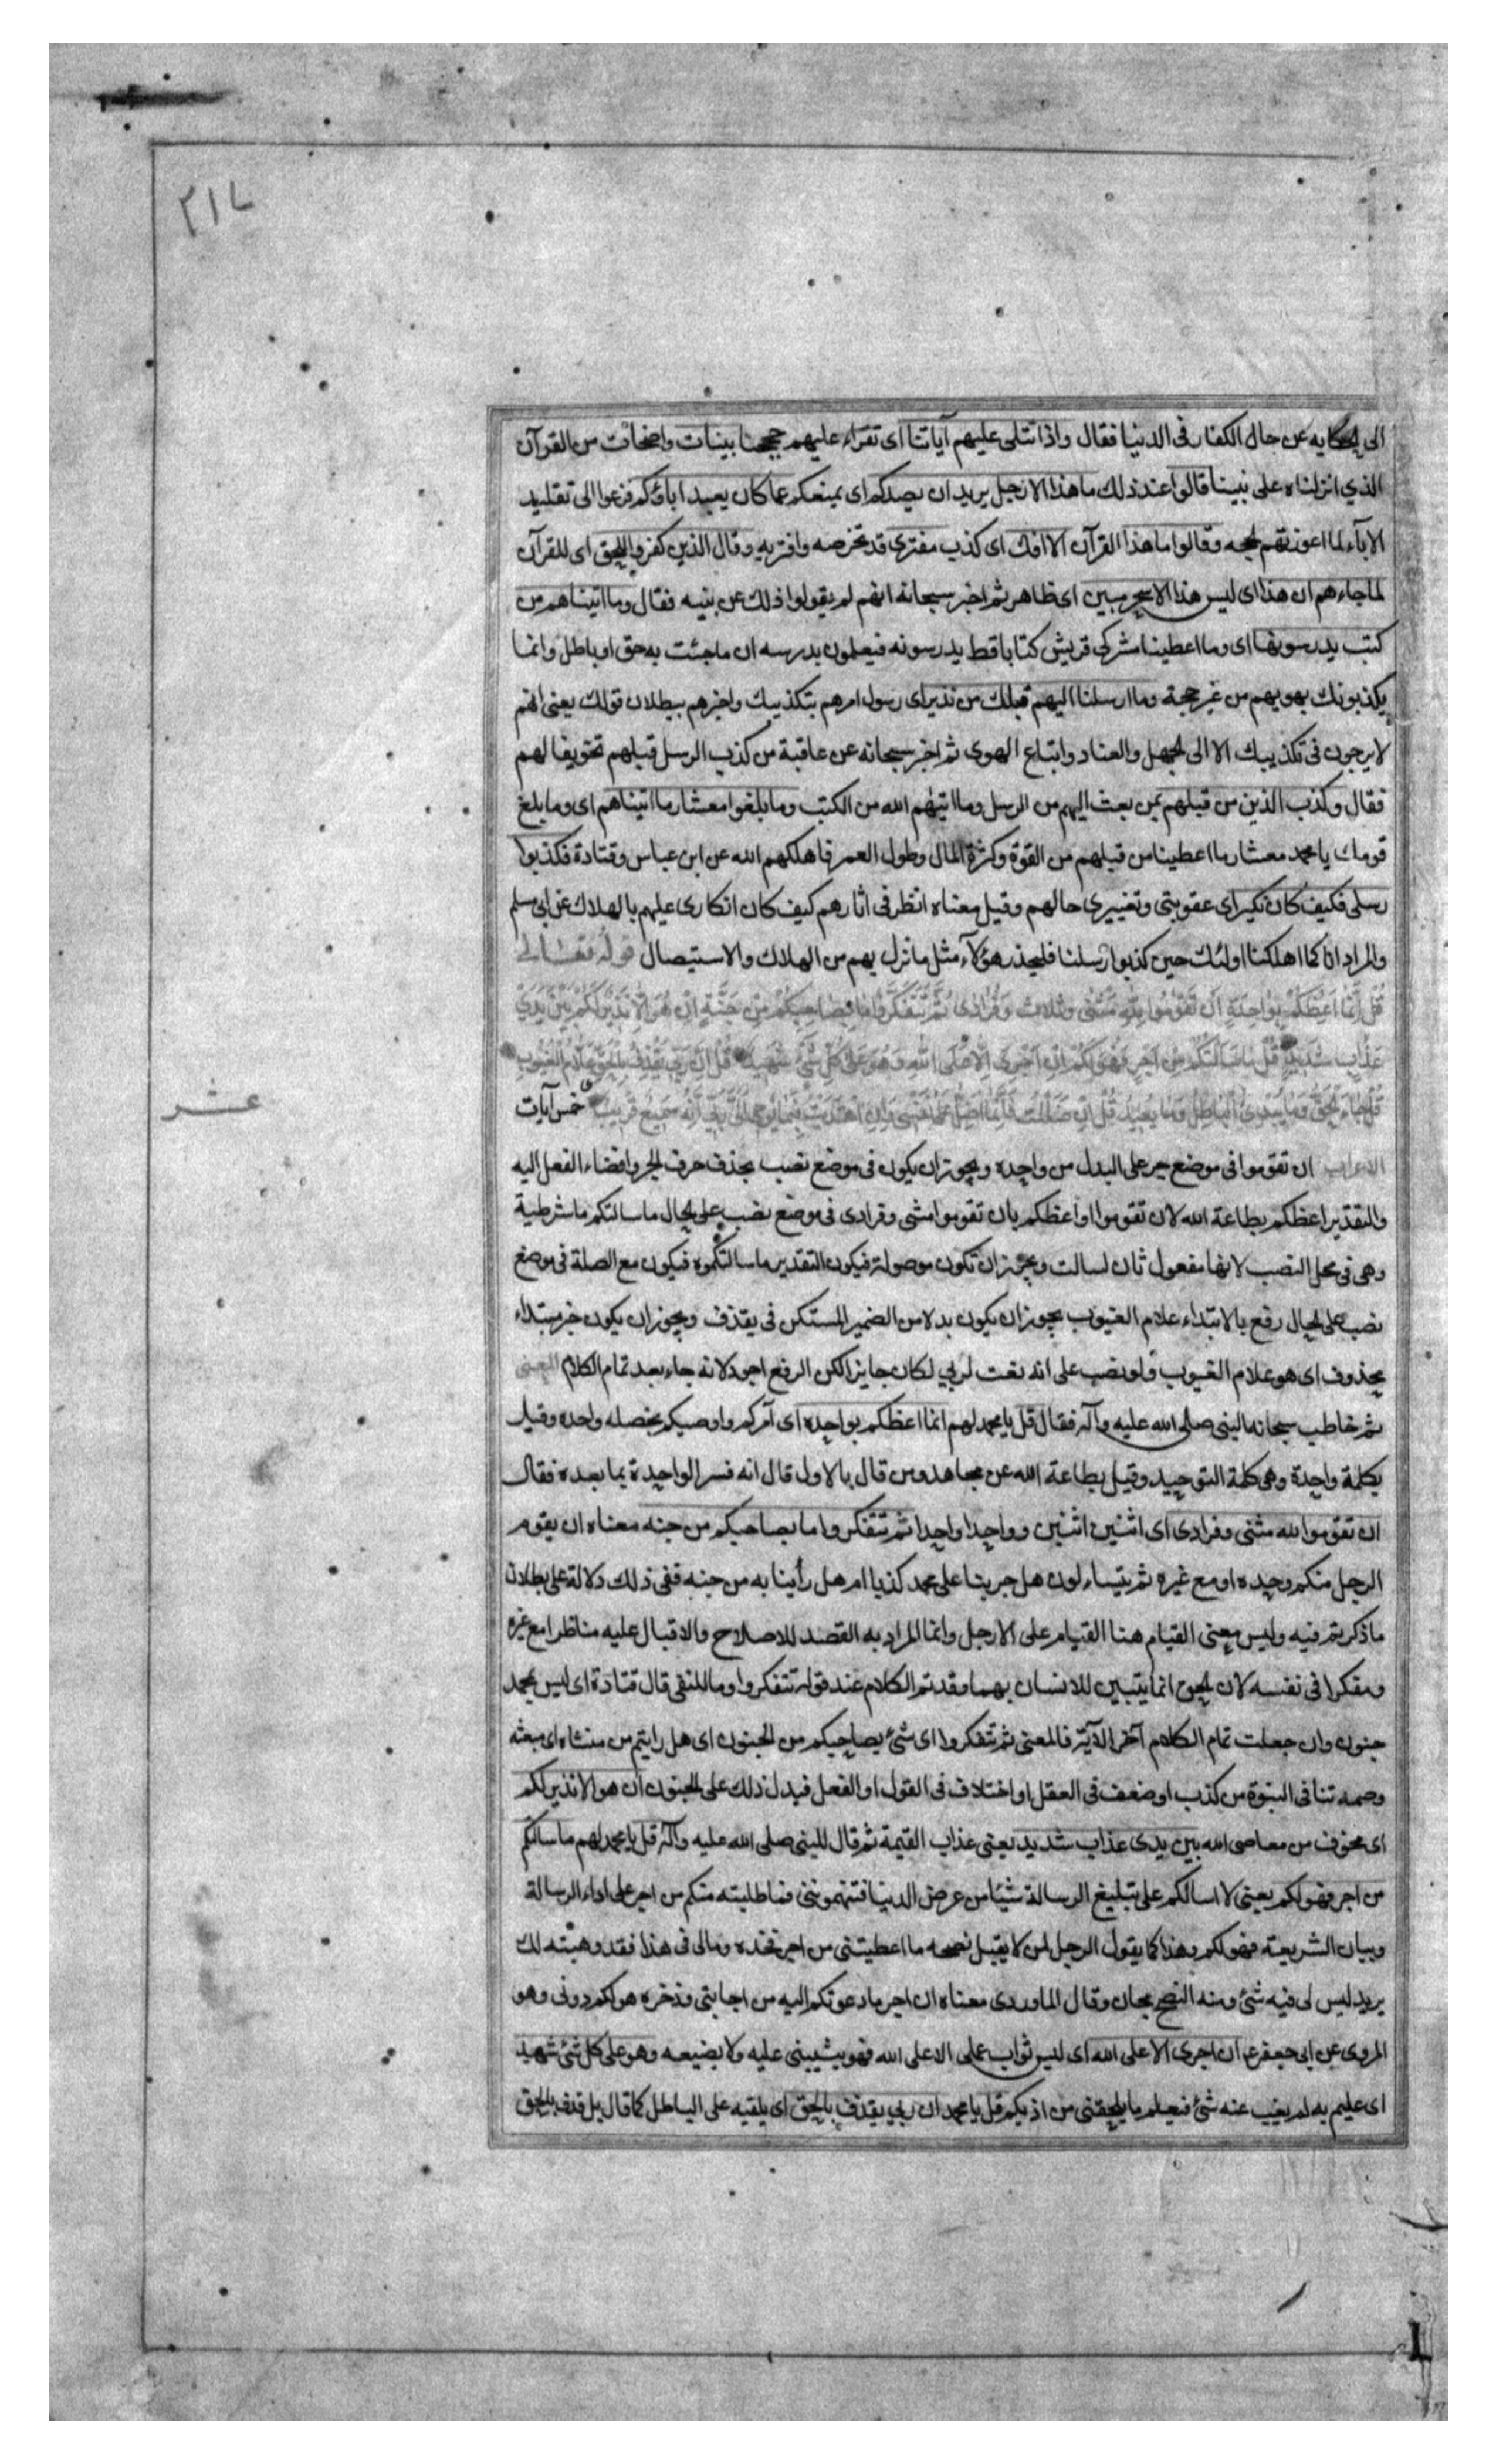 ٢١٤
الى الحكايه عن حال الكفار فى الدنيا فقال واذا تتلى عليهم آياتنا اى تقراء عليهم حججنا بينات واضحات من القرآن
الذي انزلناه على نبينا قالوا عند ذلك ما هذا الا رجل يريد ان يصدكم اى يمنعكم عما كان يعبد اباؤكم فزعوا الى تقليد
الآباء لما اعوزتهم الحجه وقالوا ما هذا القرآن الا افك اى كذب مفترى قد تخرصه وافتريه وقال الذين كفروا للحق اى للقرآن
لما جاءهم ان هذا اى ليس هذا الا سحر مبين اى ظاهر ثم اخبر سبحانه انهم لم يقولوا ذلك عن بنيه فقال وما اتيناهم من
كتب يدرسونها اى وما اعطينا مشركى قريش كتابا قط يدرسونه فيعلمون بدرسه ان ما جئت به حق او باطل وانما
يكذبونك بهويهم من غير حجة وما ارسلنا اليهم قبلك من نذير اى رسول امرهم بتكذيبك واخبرهم ببطلان قولك يعنى انهم
لا يرجون فى تكذيبك الا الى الجهل والعناد واتباع الهوى ثم اخبر سبحانه عن عاقبة من كذب الرسل قبلهم تخويفا لهم
فقال وكذب الذين من قبلهم بمن بعث اليهم من الرسل وما اتيهم الله من الكتب وما بلغوا معشار ما اتيناهم اى وما بلغ
قومك يا محمد معشار ما اعطينا من قبلهم من القوة وكثرة المال وطول العمر فاهلكهم الله عن ابن عباس وقتادة فكذبوا
رسلى فكيف كان نكير اى عقوبتى وتغييرى حالهم وقيل معناه انظر فى اثارهم كيف كان انكارى عليهم بالهلاك عن ابى مسلم
والمراد انا كما اهلكنا اولئك حين كذبوا رسلنا فليحذر هؤلاء مثل ما نزل بهم من الهلاك والاستيصال قوله تعالى
قُل اِنَّما اَعِظُكُم بِواحِدَةٍ اَن تَقُومُوا لِلّهِ مَثْنى وثلاث وَفُرادى ثُمَّ تَتَفَكَّرُوا ما بِصاحِبِكُم مِن جِنَّةٍ اِن هُوَ اِلّا نَذِيرٌ لَكُم بَيْنَ يَدَيْ
عَذابٍ شَدِيدٍ قُل ما سَاَلْتُكُم مِن اَجْرٍ فَهُوَ لَكُم اِن اَجْرِيَ اِلّا عَلَى اللهِ وَهُوَ عَلى كُلِّ شَيْءٍ شَهِيدٌ قُل اِنَّ رَبِّي يَقْذِفُ بِالْحَقِّ عَلّامُ الْغُيُوبِ
قُل جاءَ الْحَقُّ وَما يُبْدِئُ الْباطِلُ وَما يُعِيدُ قُل اِن ضَلَلْتُ فَاِنَّما اَضِلُّ عَلى نَفْسِي وَاِنِ اهْتَدَيْتُ فَبِما يُوحِي اِلَيَّ رَبِّي اِنَّهُ سَمِيعٌ قَرِيبٌ خمس آيات
عشر
الاعراب ان تقوموا فى موضع جر على البدل من واحده ويجوز ان يكون فى موضع نصب بحذف حرف الجر وافضاء الفعل اليه
والتقدير اعظكم بطاعة الله لان تقوموا او اعظكم بان تقوموا مثنى وفرادى فى موضع نصب على الحال ما سالتكم ما شرطية
وهى فى محل النصب لانها مفعول ثان لسالت ويجوز ان تكون موصولة فيكون التقدير ما سالتكموه فيكون مع الصلة فى موضع
نصب على الحال رفع بالابتداء علام الغيوب يجوز ان يكون بدلا من الضمير المستكن فى يقذف ويجوز ان يكون خبر مبتداء
محذوف اى هو علام الغيوب ولو نصب على انه نعت لربي لكان جايزا لكن الرفع اجود لانه جاء بعد تمام الكلام المعنى
ثم خاطب سبحانه النبى صلى الله عليه وآله فقال قل يا محمد لهم انما اعظكم بواحده اى آمركم واوصيكم بخصله واحده وقيل
بكلمة واحدة وهى كلمة التوحيد وقيل بطاعة الله عن مجاهد ومن قال بالاول قال انه فسر الواحدة بما بعده فقال
ان تقوموا لله مثنى وفرادى اى اثنين اثنين وواحدا واحدا ثم تتفكروا ما بصاحبكم من جنه معناه ان يقوم
الرجل منكم وحده او مع غيره ثم يتساءلون هل جربنا على محمد كذبا ام هل رأينا به من جنه ففى ذلك دلالة على بطلان
ما ذكرتم فيه وليس معنى القيام هنا القيام على الارجل وانما المراد به القصد للاصلاح والاقبال عليه مناظرا مع غيره
ومفكرا فى نفسه لان الحق انما يتبين للانسان بهما وقد تم الكلام عند قوله تتفكروا وما للنفى قال قتادة اى ليس بمحمد
جنون وان جعلت تمام الكلام آخر الآية فالمعنى ثم تتفكروا اى شئ بصاحبكم من الجنون اى هل رايتم من منشاه اى مبعثه
وصمه تنافى النبوة من كذب او ضعف فى العقل او اختلاف فى القول او الفعل فيدل ذلك على الجنون ان هو الا نذير لكم
اى مخوف من معاصى الله بين يدى عذاب شديد يعنى عذاب القيمة ثم قال للنبى صلى الله عليه وآله قل يا محمد لهم ما سالتكم
من اجر فهو لكم يعنى لا اسالكم على تبليغ الرسالة شيئا من عرض الدنيا فتتهمونى فما طلبته منكم من اجر على اداء الرسالة
وبيان الشريعة فهو لكم وهذا كما يقول الرجل لمن لا يقبل نصحه ما اعطيتنى من اجر فخذه ومالى فى هذا فقد وهبته لك
يريد ليس لى فيه شئ ومنه النصح مجان وقال الماوردى معناه ان اجر ما دعوتكم اليه من اجابتى وذخره هو لكم دونى وهو
المروى عن ابى جعفر ع ان اجرى الا على الله اى ليس ثواب عملى الا على الله فهو يثيبنى عليه ولا يضيعه وهو على كل شئ شهيد
اى عليم به لم يغيب عنه شئ فيعلم ما يلحقنى من اذيكم قل يا محمد ان ربي يقذف بالحق اى يلقيه على الباطل كما قال بل نقذف بالحق